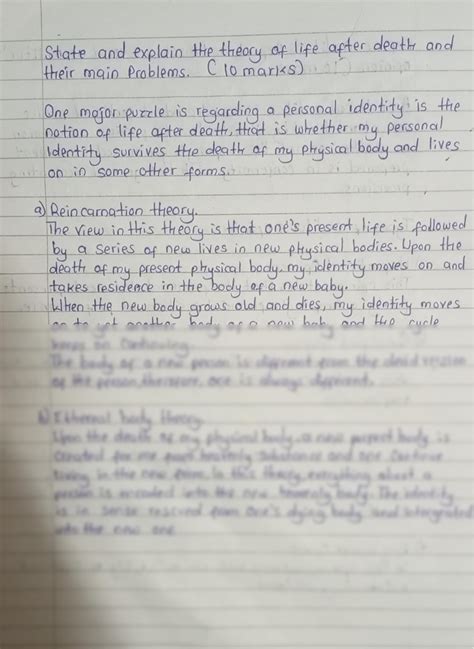 State and explain the theory of life after death and
their main Problems. (10 marks)
One major puzzle is regarding a personal identity is the
notion of life after death, that is whether my personal
Identity survives the death of my physical body and lives
on in some other forms.
a) Reincarnation theory.
The view in this theory is that one's present life is followed
by a series of new lives in new physical bodies. Upon the
death of my present physical body, my identity moves on and
takes residence in the body of a new baby.
When the new body grows old and dies, my identity moves
on to yet another body of a new baby and the cycle
keeps on continuing.
The body of a new person is different from the dead version
of the person, therefore, one is always different.
b) Ethereal body theory
Upon the death of my physical body, a new perfect body is
created for me heavenly substance and one continue
living in the new form. In this theory, everything about a
person is encoded into the new heavenly body. The identity
is in sense rescued from one's dying body and integrated
into the new one